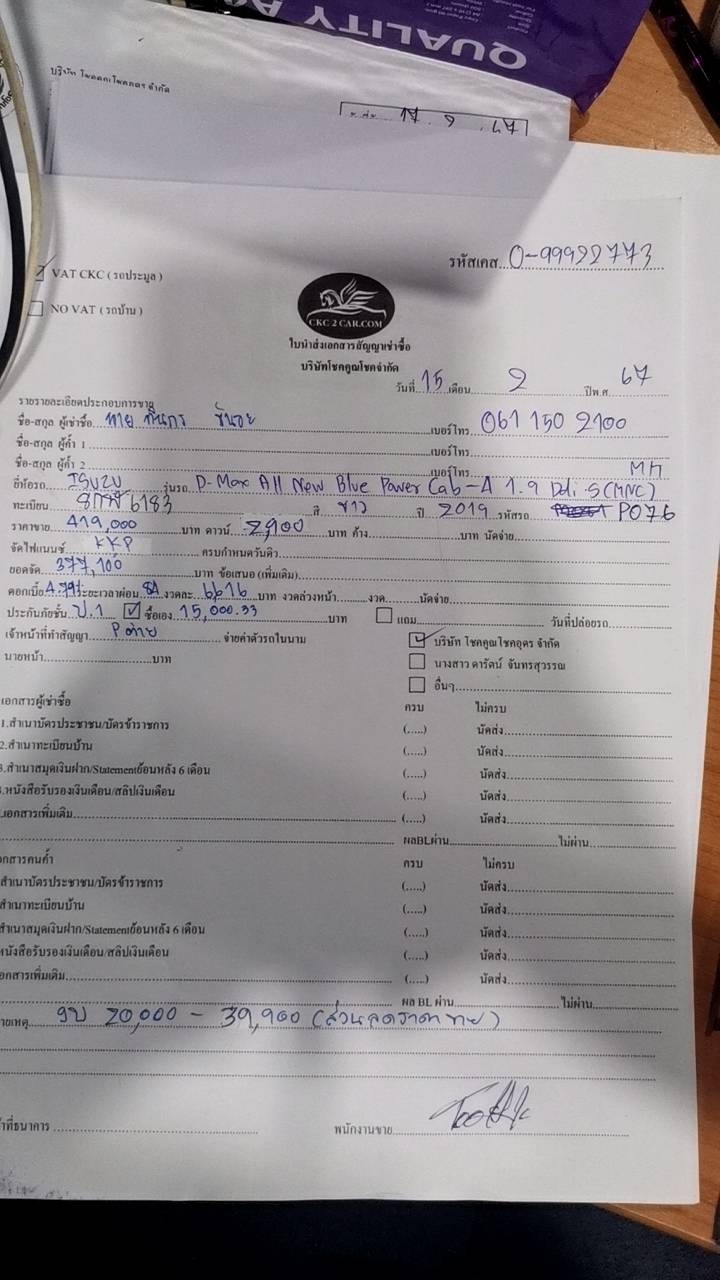 QUALITY
บริษัท โชคคูณโชคอุดร จำกัด
17 . 2 . 67
รหัสเคส 0-99922773
VAT CKC ( รถประมูล )
NO VAT ( รถบ้าน )
CKC 2 CAR.COM
ใบนำส่งเอกสารสัญญาเช่าซื้อ
บริษัทโชคคูณโชคจำกัด
วันที่ 15 เดือน 2 ปีพ.ศ 67
รายรายละเอียดประกอบการขาย
ชื่อ-สกุล ผู้เช่าซื้อ นาย เบอร์โทร 061 150 2100
ชื่อ-สกุล ผู้ค้ำ 1 เบอร์โทร
ชื่อ-สกุล ผู้ค้ำ 2 เบอร์โทร
ยี่ห้อรถ ISUZU รุ่นรถ D-Max All New Blue Power Cab-4 1.9 Ddi S (MNC) MT
ทะเบียน 6183 สี ขาว ปี 2019 รหัสรถ P076
ราคาขาย 419,000 บาท ดาวน์ 2,900 บาท ค้าง บาท นัดจ่าย
จัดไฟแนนซ์ KKP ครบกำหนดวันดิว
ยอดจัด 377,100 บาท ข้อเสนอ (เพิ่มเติม)
ดอกเบี้ย 4.79% ระยะเวลาผ่อน 84 งวดละ 6616 บาท งวดล่วงหน้า งวด นัดจ่าย
ประกันภัยชั้น ป.1 ซื้อเอง 15,000.33 บาท แถม วันที่ปล่อยรถ
เจ้าหน้าที่ทำสัญญา จ่ายค่าตัวรถในนาม บริษัท โชคคูณโชคอุดร จำกัด
นายหน้า บาท นางสาว ดารัตน์ จันทรสุวรรณ
อื่นๆ
เอกสารผู้เช่าซื้อ ครบ ไม่ครบ
1.สำเนาบัตรประชาชน/บัตรข้าราชการ (.....) นัดส่ง
2.สำเนาทะเบียนบ้าน (.....) นัดส่ง
3.สำเนาสมุดเงินฝาก/Statementย้อนหลัง 6 เดือน (.....) นัดส่ง
.หนังสือรับรองเงินเดือน/สลิปเงินเดือน (.....) นัดส่ง
เอกสารเพิ่มเติม (.....) นัดส่ง
ผลBLผ่าน ไม่ผ่าน
อกสารคนค้ำ ครบ ไม่ครบ
สำเนาบัตรประชาชน/บัตรข้าราชการ (.....) นัดส่ง
สำเนาทะเบียนบ้าน (.....) นัดส่ง
สำเนาสมุดเงินฝาก/Statementย้อนหลัง 6 เดือน (.....) นัดส่ง
หนังสือรับรองเงินเดือน/สลิปเงินเดือน (.....) นัดส่ง
อกสารเพิ่มเติม (.....) นัดส่ง
ผล BL ผ่าน ไม่ผ่าน
ายเหตุ งบ 20,000 - 39,900 (ส่วนลดราคาขาย)
าที่ธนาคาร พนักงานขาย